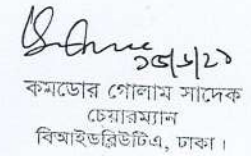 ১৫/৬/২১
কমডোর গোলাম সাদেক
চেয়ারম্যান
বিআইডব্লিউটিএ, ঢাকা।